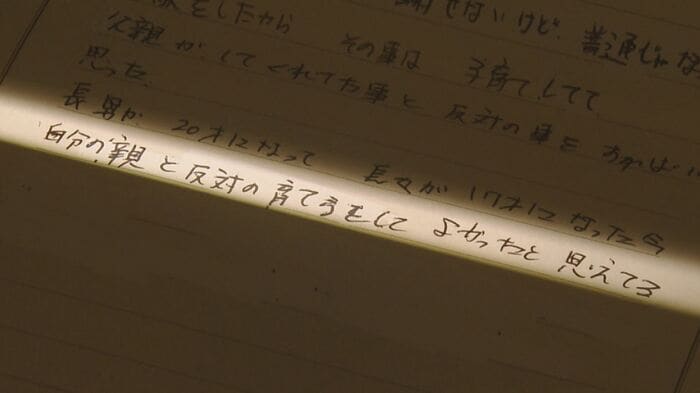 せないけど、普通じゃな
をしたから その事は 子育てしてて
父親がしてくれてた事と反対の事を
思った。
長男が 20才になって 長女が 17才になった今
自分の親と反対の育て方をして よかったと 思えてる